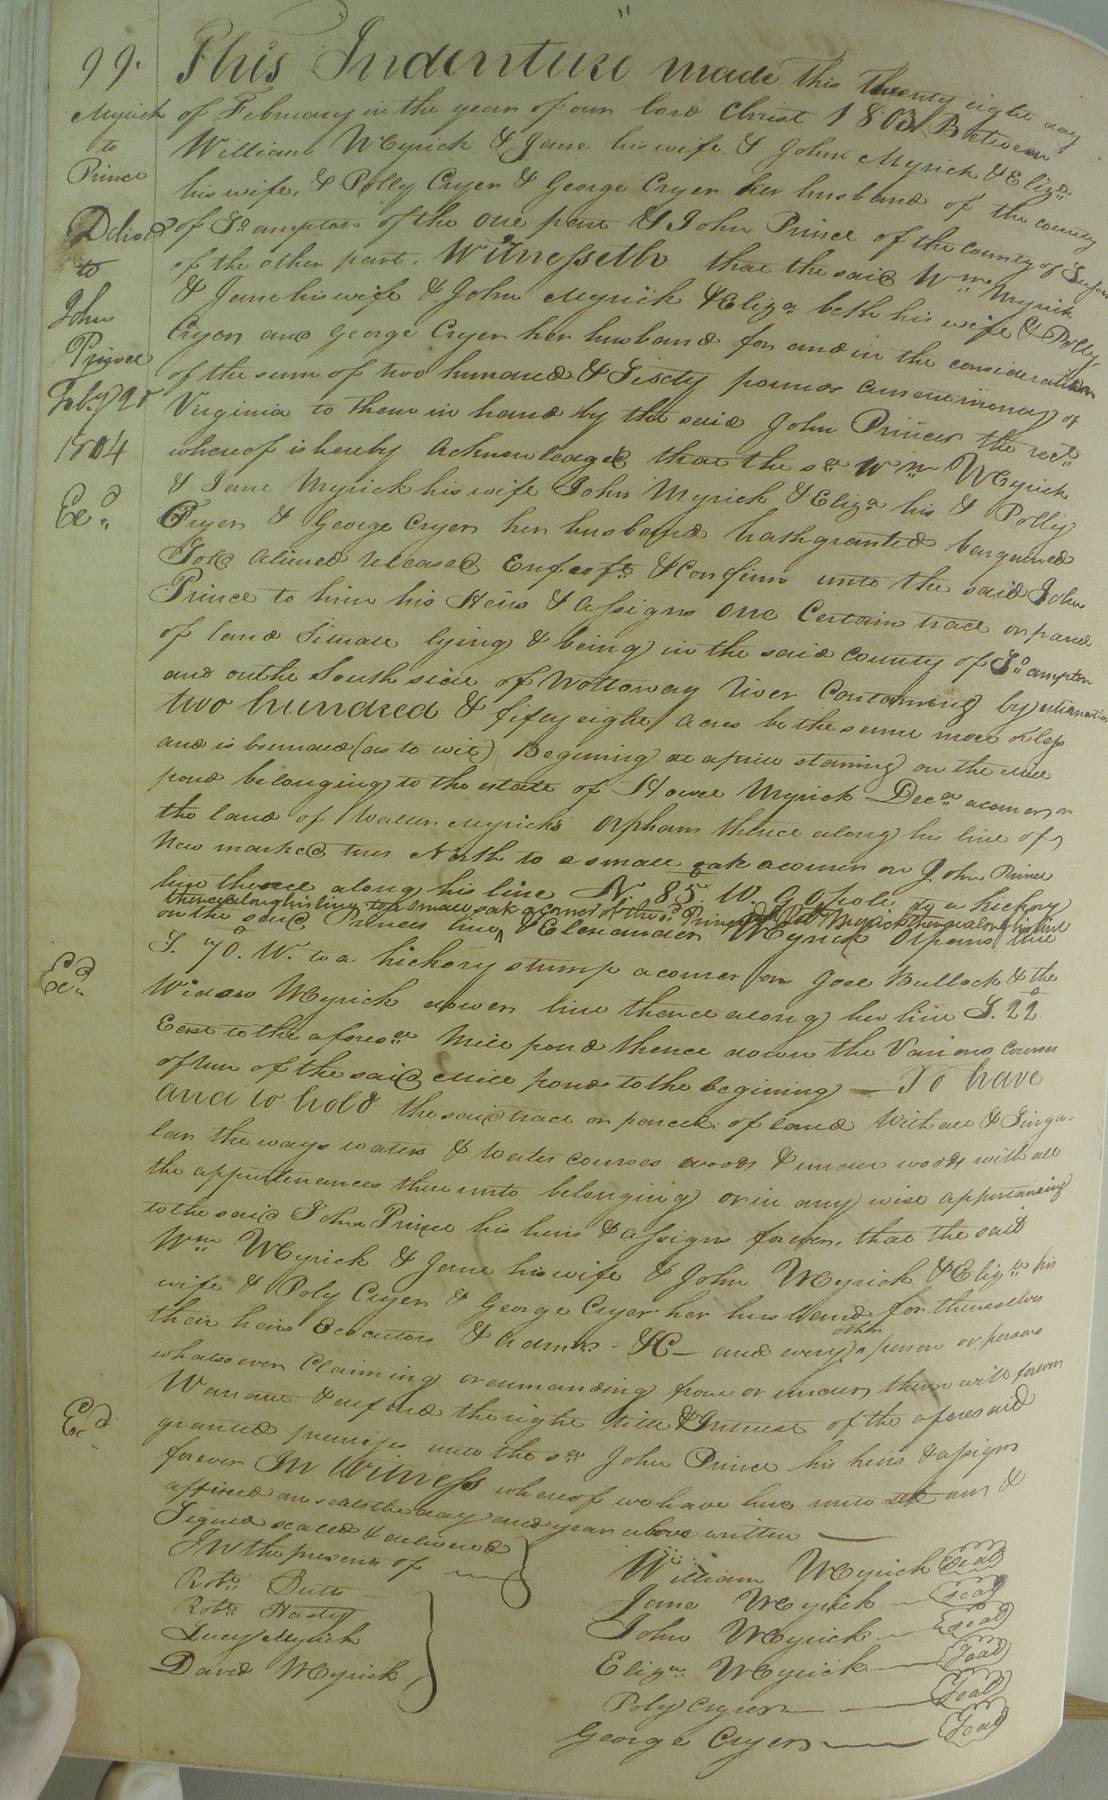 99.
Myrick
to
Prince
Deliverd
to
John
Prince
Feby 28
1804
Exd
Exd
Exd
This Indenture made this Twenty eight day
of February in the year of our lord Christ 1803 Between
William Myrick & Jane his wife & John Myrick & Eliza
his wife, & Polly Cryer & George Cryer her husband of the county
of So ampton of the one part & John Prince of the county of
of the other part. Witnesseth that the said Wm Myrick
& Jane his wife & John Myrick & Eliza beth his wife & Polly
Cryer and George Cryer her husband for and in the consideration
of the sum of two hundred & Sixty pounds current money of
Virginia to them in hand by the said John Prince the rect
whereof is hereby Acknowledged that the sd Wm Myrick
& Jane Myrick his wife John Myrick & Eliza his & Polly
Cryer & George Cryer her husband hath granted bargained
Sold aliened released Enfeoft & Confirm unto the said John
Prince to him his Heirs & Assigns one Certain tract or parcel
of land Situate lying & being in the said county of So ampton
and on the South side of Nottaway River Containing by estimation
two hundred & fifty eight Acres be the same more or less
and is bounded (as to wit) Begining at a pine standing on the mill
pond belonging to the estate of Howel Myrick Decd a corner on
the land of Walter Myricks Orphans thence along his line of
New marked trees North to a small oak a corner on John Prince
line thence along his line N. 85. W. 90 pole to a hickory
thence along his line to a small oak a corner of the sd Prince Myrick thence along his line
on the said Princes line, & Elexander Myrick Orphans line
S. 70. W. to a hickory stump a corner on Joel Bullock & the
Widow Myrick dower line thence along her line S. 22
East to the aforesd Mill pond thence down the Various courses
of run of the said Mill pond to the begining — To have
and to hold the said tract or parcel of land With all & Singu-
lar the ways waters & Water courses woods & under woods with all
the appurtenances thereunto belonging or in any wise appertaining
to the said John Prince his heirs & assigns forever, that the said
Wm Myrick & Jane his wife & John Myrick & Eliza his
wife & Poly Cryer & George Cryer her husband for themselves
their heirs Executors & Admrs. &C— and every other person or persons
whatsoever Claiming or demanding from or under them will forever
Warrant & defend the right title & Interest of the aforesaid
granted premises unto the sd John Prince his heirs & assigns
forever In Witness whereof we have here unto set our &
affixed our seals the day and year above written —
Signed sealed & delivered
In the presents of
Robt Butts
Robt Hasty
Lucy Myrick
David Myrick
William Myrick Seal
Jane Myrick Seal
John Myrick Seal
Eliza Myrick Seal
Poly Cryer Seal
George Cryer Seal